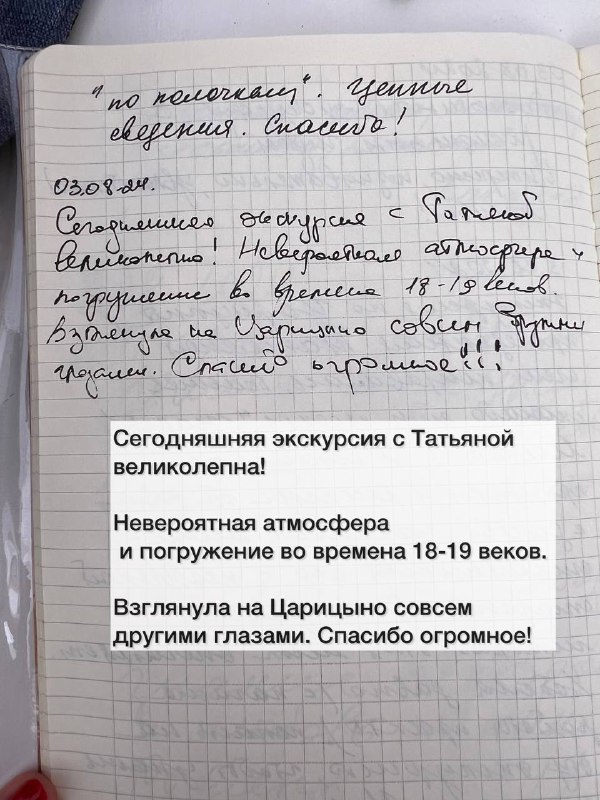 "по полочкам". Ценные
сведения. Спасибо!
03.08.24.
Сегодняшняя экскурсия с Татьяной
великолепна! Невероятная атмосфера и
погружение во времена 18-19 веков.
Взглянула на Царицыно совсем другими
глазами. Спасибо огромное!!!
Сегодняшняя экскурсия с Татьяной
великолепна!
Невероятная атмосфера
и погружение во времена 18-19 веков.
Взглянула на Царицыно совсем
другими глазами. Спасибо огромное!